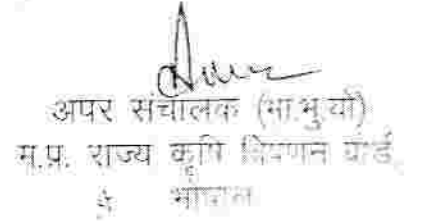 अपर संचालक (भा.भु.यो)
म.प्र. राज्य कृषि विपणन बोर्ड
भोपाल